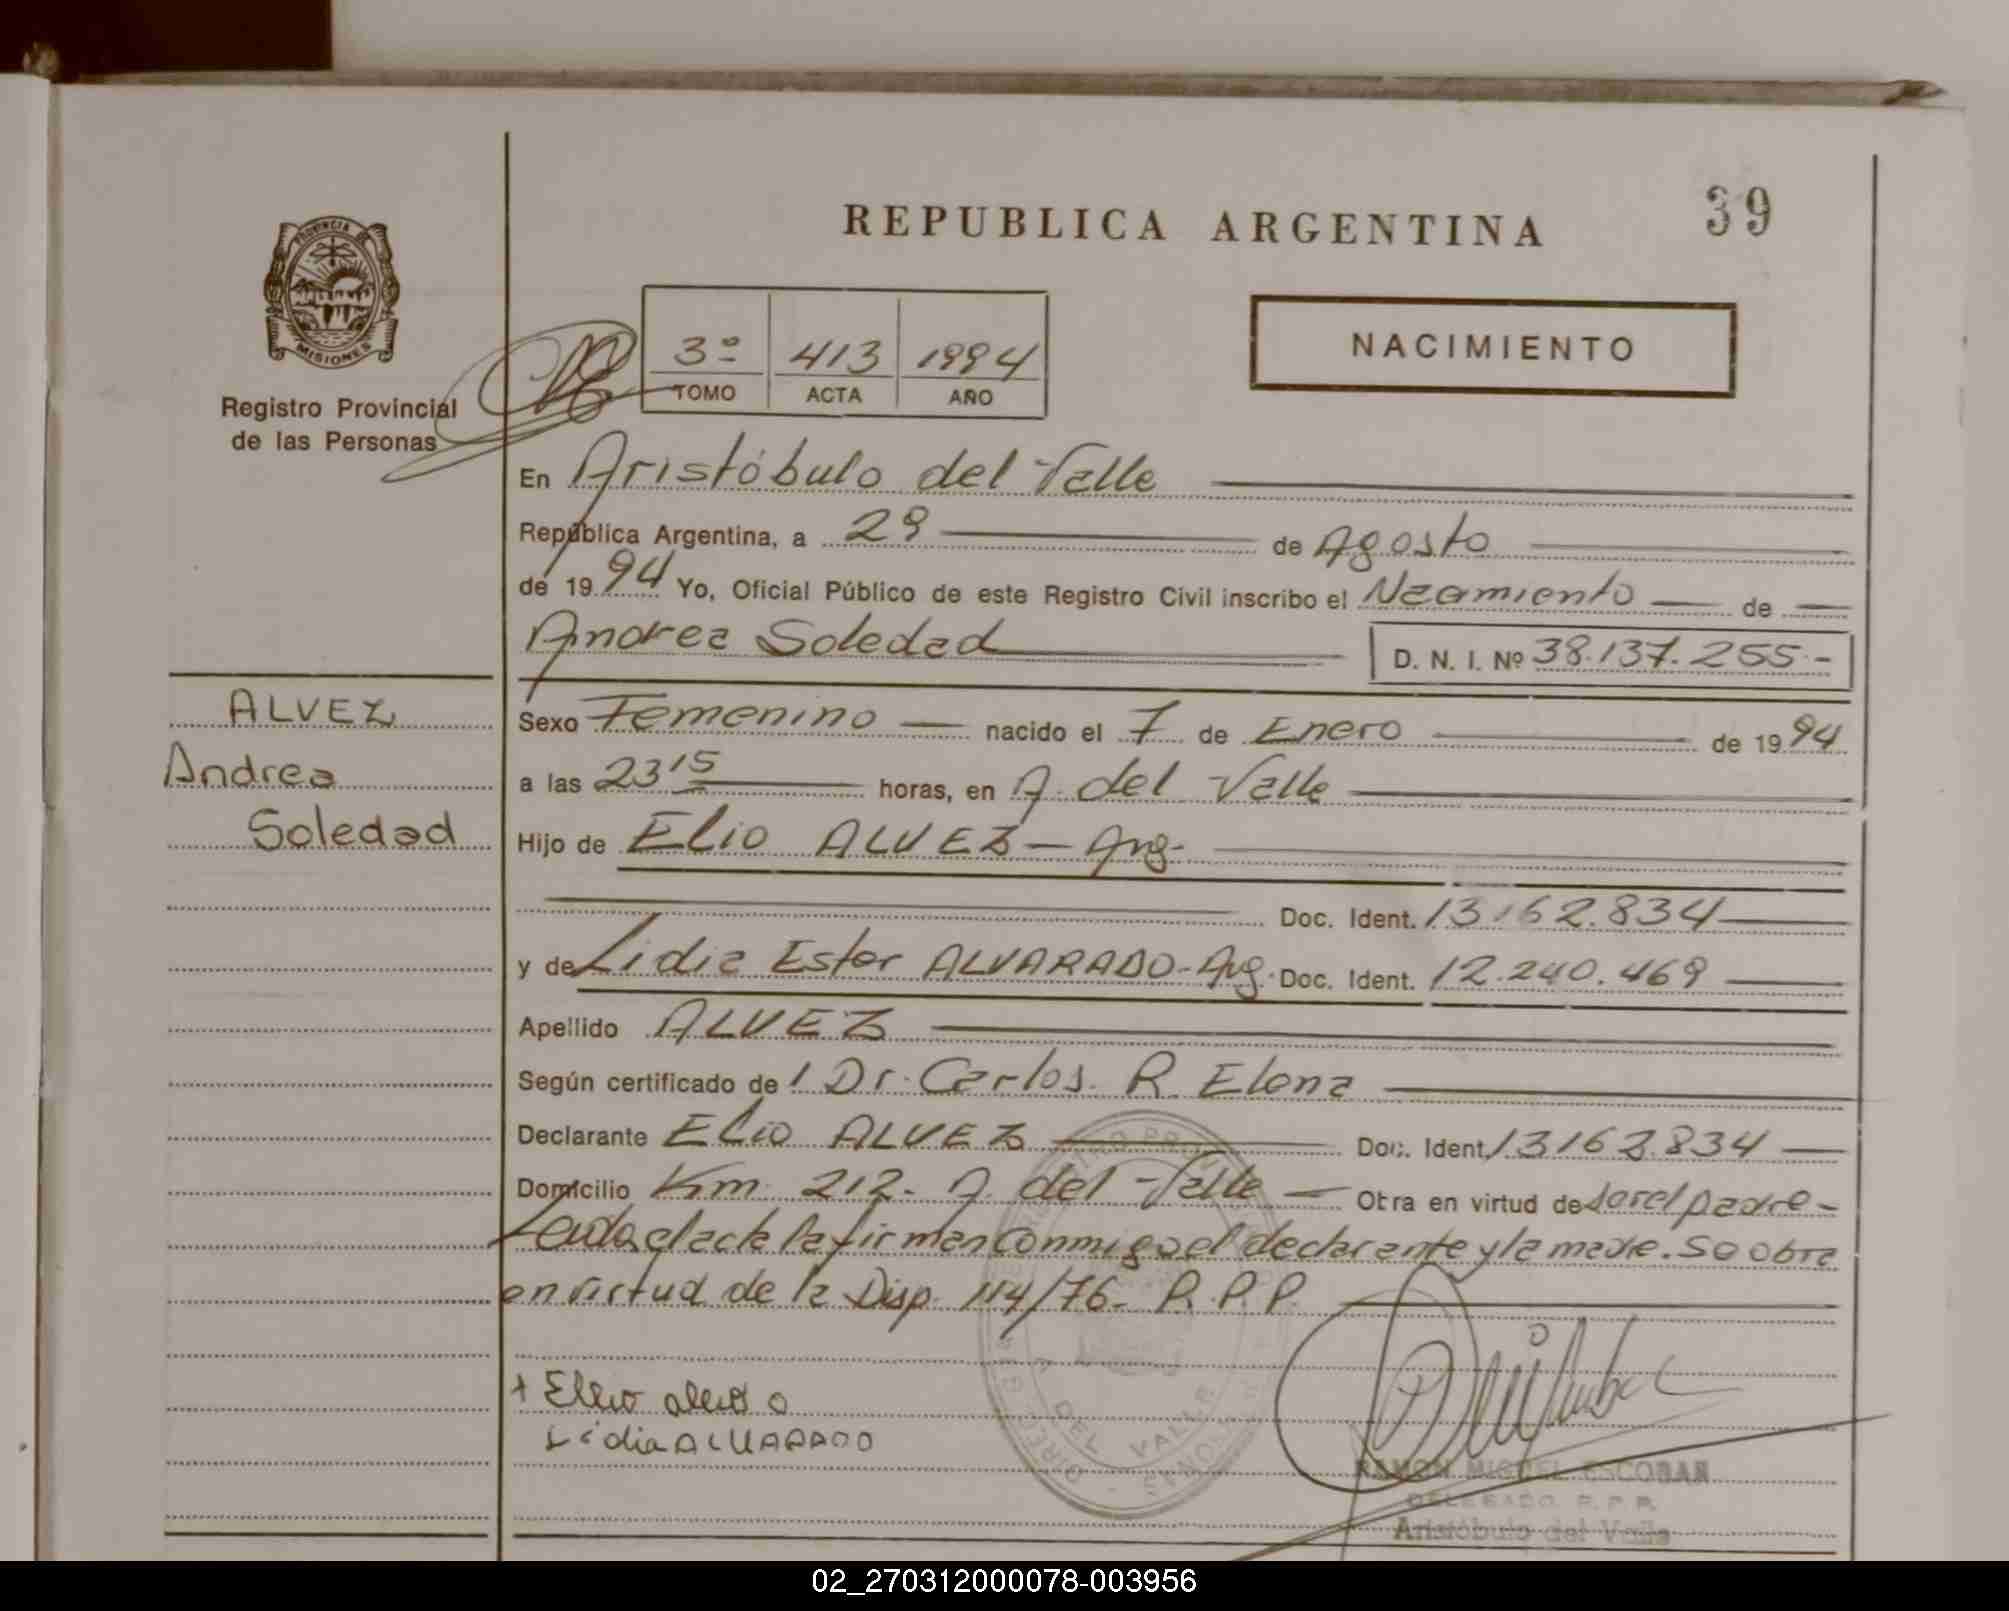 REPUBLICA ARGENTINA
39
PROVINCIA DE
MISIONES
Registro Provincial
de las Personas
3º 413 1994
TOMO ACTA AÑO
NACIMIENTO
En Aristóbulo del Valle
República Argentina, a 29 de Agosto
de 1994 Yo, Oficial Público de este Registro Civil inscribo el Nacimiento de
Andrea Soledad D. N. I. Nº 38.137.255.-
ALVEZ
Andrea
Soledad
Sexo Femenino nacido el 7 de Enero de 1994
a las 23 15 horas, en A. del Valle
Hijo de Elio ALVEZ - Arg.
Doc. Ident. 13.162.834
y de Lidia Ester ALVARADO - Arg. Doc. Ident. 12.240.469
Apellido ALVEZ
Según certificado de Dr. Carlos R. Elena
Declarante Elio ALVEZ Doc. Ident. 13162.834
Domicilio Km. 212. A. del Valle Otra en virtud de ser el padre -
Leida el acta la firman conmigo el declarante y la madre. Se obra
en virtud de la Disp. 114/76- R.P.P.
Lidia ALVARADO
A DEL VALLE
MISIONES
RAMON MIGUEL ESCOBAR
DELEGADO R.P.P.
Aristóbulo del Valle
02_270312000078-003956